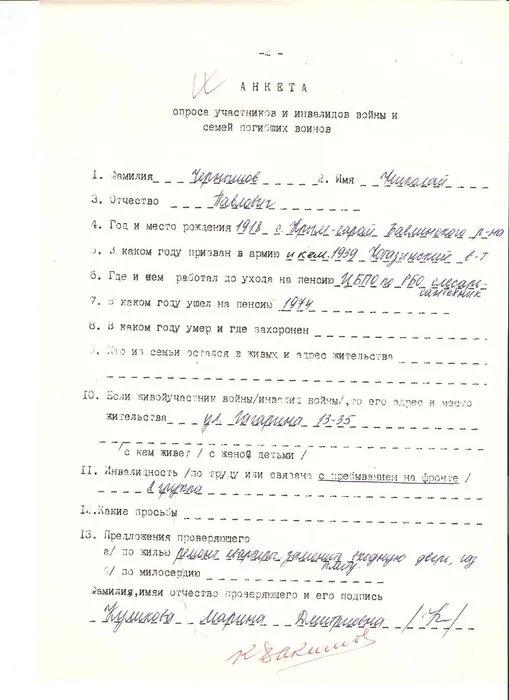 -2-
А Н К Е Т А
опроса участников и инвалидов войны и
семей погибших воинов
1. Фамилия Чернышов 2. Имя Николай
3. Отчество Павлович
4. Год и место рождения 1918 с. Крым-Сарай Бавлинского р-на
5. В каком году призван в армию 1939
6. Где и кем работал до ухода на пенсию ЦБПО по РБО слесарь-
сантехник
7. В каком году ушел на пенсию 1974
8. В каком году умер и где захоронен
9. Кто из семьи остался в живых и адрес жительства
10. Если живой/участник войны/инвалид войны/,то его адрес и место
жительства ул. Гагарина 13-35
/с кем живет / с женой детьми /
11. Инвалидность /по труду или связана с пребыванием на фронте /
2 группа
12. Какие просьбы
13. Предложения проверяющего
а/ по жилью ремонт квартиры заменить входную дверь, газ
плиту
б/ по милосердию
Фамилия,имяи отчество проверяющего и его подпись
Куликова Марина Дмитриевна